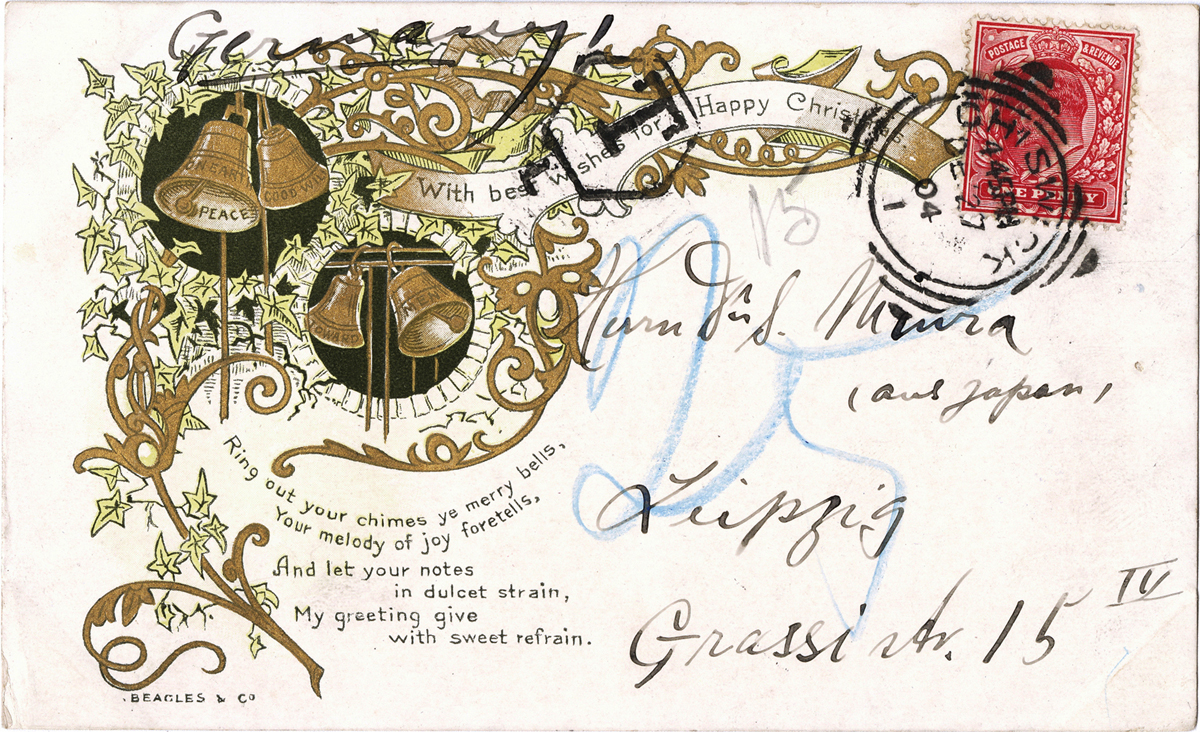 Germany!
T
With best Wishes for a Happy Christmas
POSTAGE & REVENUE
ONE PENNY
04
1
PEACE
GOOD W
TOWARD
MEN
15
25
Herrn Dr. S. Miura
(aus Japan)
Leipzig
Grassi str. 15 IV
Ring out your chimes ye merry bells,
Your melody of joy foretells,
And let your notes
in dulcet strain,
My greeting give
with sweet refrain.
BEAGLES & Co